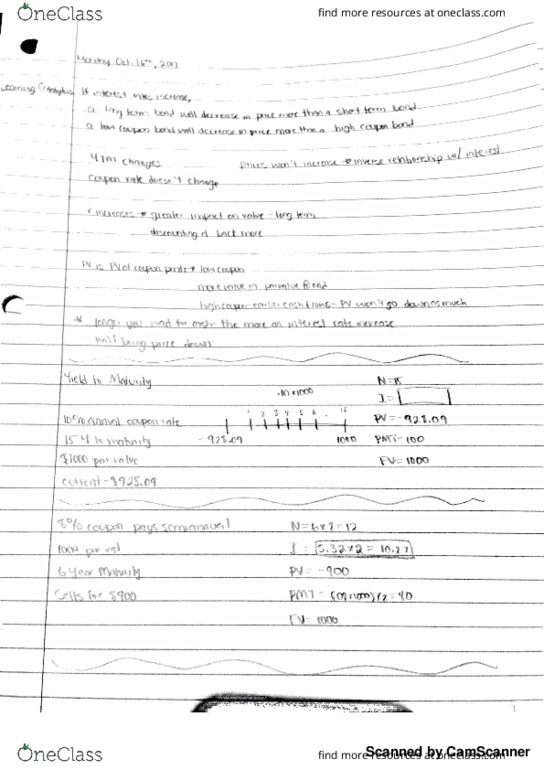 OneClass
find more resources at oneclass.com
Monday Oct. 16th, 2017
If interest rates increase,
a long term bond will decrease in price more than a short term bond
a low coupon bond will decrease in price more than a high coupon bond
YTM changes prices won't increase inverse relationship w/ interest
coupon rate doesn't change
r increases → greater impact on value - long term
discounting it back more
PV is PV of coupon low coupon
more value in par value @ end
high coupon earlier cash flows - PV won't go down as much
* longer you wait for cash the more an interest rate increase
will bring price down
Yield to Maturity
.10 x 1000
N = 15
I =
10% annual coupon rate
1 2 3 4 5 6 15
PV = -928.09
15 Y to maturity
-928.09 1000
PMT = 100
$1000 par value
FV = 1000
current - $928.09
8% coupon pays semiannual
N = 6 x 2 = 12
1000 par val
I =
6 year Maturity
PV = -900
Sells for $900
PMT = /2 = 40
FV = 1000
OneClass
find more resources at oneclass.com
Scanned by CamScanner